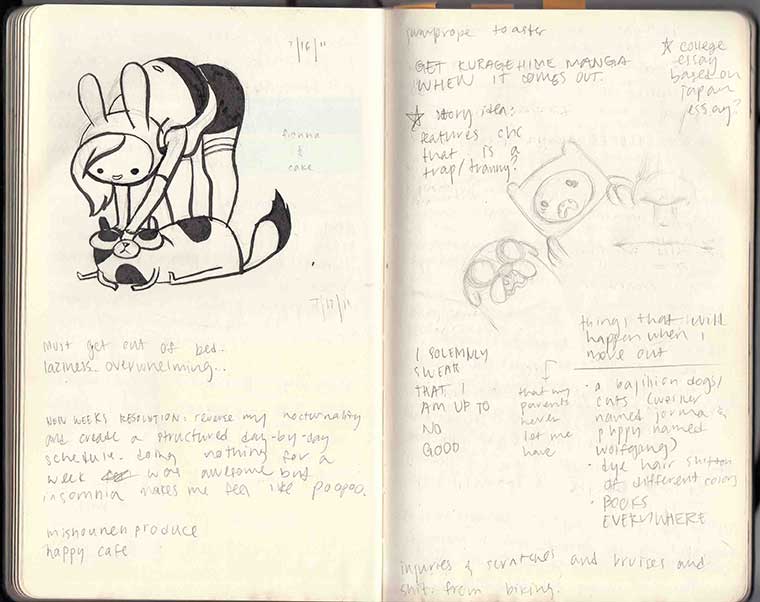 7/16/11
fionna
&
cake
7/17/11
must get out of bed..
laziness.. overwhelming...
NEW WEEKS RESOLUTION: reverse my nocturnality
and create a structured day-by-day
schedule. doing nothing for a
week was awesome but
insomnia makes me feel like poopoo.
mishounen produce
happy cafe
jumprope toaster
GET KURAGEHIME MANGA
WHEN IT COMES OUT.
☆ college
essay
based on
japan
essay?
☆ story idea:
features chc
that is a
trap/tranny?
I SOLEMNLY
SWEAR
THAT I
AM UP TO
NO
GOOD
things that will
happen when i
move out
that my
parents
never
let me
have
• a bajillion dogs/
cats (weiner
named jorma &
puppy named
wolfgang)
• dye hair
of different colors
• BOOKS
EVERYWHERE
injuries & scratches and bruises and
shit from biking.